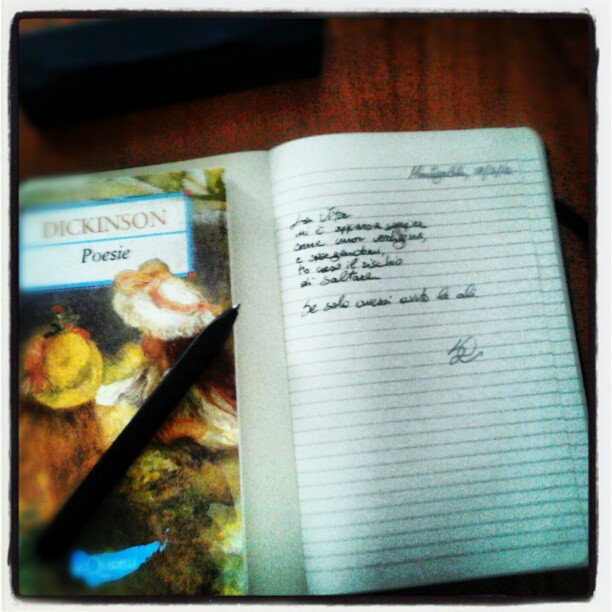 DICKINSON
Poesie
La vita
mi è apparsa sempre
come una voragine,
e sporgendomi,
ho corso il rischio
di saltare
Se solo avessi avuto le ali